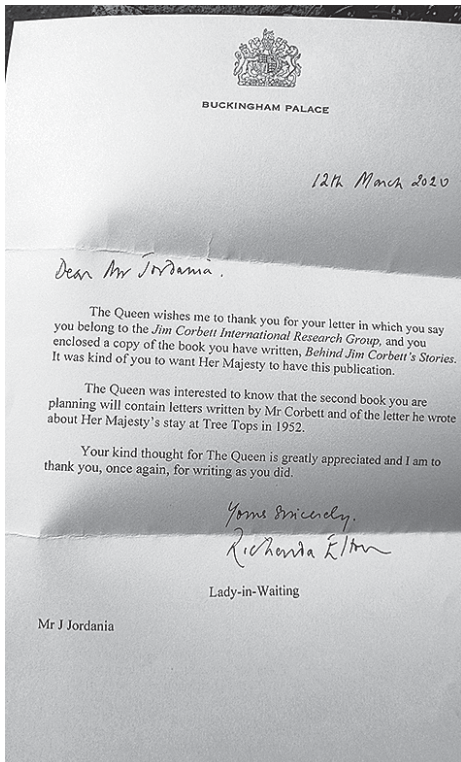 BUCKINGHAM PALACE
12th March 2020
Dear Mr Jordania.
The Queen wishes me to thank you for your letter in which you say
you belong to the Jim Corbett International Research Group, and you
enclosed a copy of the book you have written, Behind Jim Corbett's Stories.
It was kind of you to want Her Majesty to have this publication.
The Queen was interested to know that the second book you are
planning will contain letters written by Mr Corbett and of the letter he wrote
about Her Majesty's stay at Tree Tops in 1952.
Your kind thought for The Queen is greatly appreciated and I am to
thank you, once again, for writing as you did.
Yours sincerely.
Richenda Elton
Lady-in-Waiting
Mr J Jordania